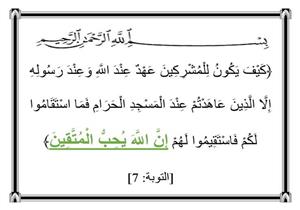 بِسْمِ اللَّهِ الرَّحْمَٰنِ الرَّحِيمِ
﴿كَيْفَ يَكُونُ لِلْمُشْرِكِينَ عَهْدٌ عِنْدَ اللَّهِ وَعِنْدَ رَسُولِهِ
إِلَّا الَّذِينَ عَاهَدْتُمْ عِنْدَ الْمَسْجِدِ الْحَرَامِ فَمَا اسْتَقَامُوا
لَكُمْ فَاسْتَقِيمُوا لَهُمْ إِنَّ اللَّهَ يُحِبُّ الْمُتَّقِينَ﴾
[التوبة: 7]